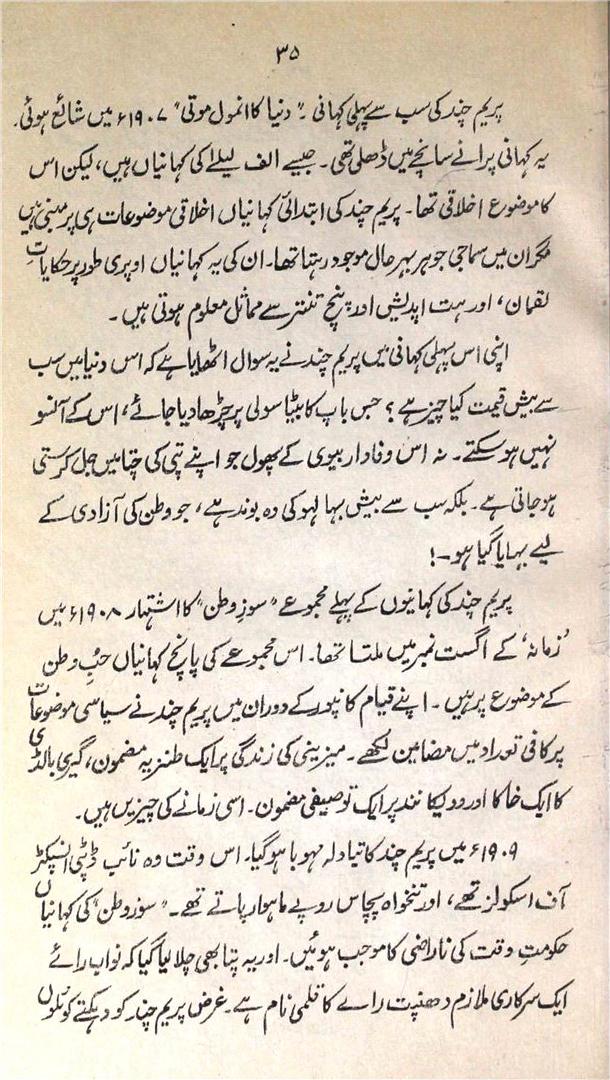 ۳۵
پریم چند کی سب سے پہلی کہانی ۔ "دنیا کا انمول موتی" ۱۹۰۷ء میں شائع ہوئی۔
یہ کہانی پرانے سانچے میں ڈھلی تھی۔ جیسے الف لیلےٰ کی کہانیاں ہیں، لیکن اس
کا موضوع اخلاقی تھا۔ پریم چند کی ابتدائی کہانیاں اخلاقی موضوعات ہی پر مبنی ہیں
مگر ان میں سماجی جوہر بہرحال موجود رہتا تھا۔ ان کی یہ کہانیاں اوپری طور پر حکایاتِ
لقمان، اور ہت اپدیش اور پنچ تنتر سے مماثل معلوم ہوتی ہیں۔
اپنی اس پہلی کہانی میں پریم چند نے یہ سوال اٹھایا ہے کہ اس دنیا میں سب
سے بیش قیمت کیا چیز ہے؟ جس باپ کا بیٹا سولی پر چڑھا دیا جائے، اس کے آنسو
نہیں ہو سکتے۔ نہ اس وفادار بیوی کے پھول جو اپنے پتی کی چتا میں جل کر ستی
ہو جاتی ہے۔ بلکہ سب سے بیش بہا لہو کی وہ بوند ہے، جو وطن کی آزادی کے
لیے بہایا گیا ہو۔!
پریم چند کی کہانیوں کے پہلے مجموعے "سوزِ وطن" کا اشتہار ۱۹۰۸ء میں
'زمانہ' کے اگست نمبر میں ملتا تھا۔ اس مجموعے کی پانچ کہانیاں حبِ وطن
کے موضوع پر ہیں۔ اپنے قیام کانپور کے دوران میں پریم چند نے سیاسی موضوعات
پر کافی تعداد میں مضامین لکھے۔ میزینی کی زندگی پر ایک طنزیہ مضمون، گیری بالڈی
کا ایک خاکا اور وویکا نند پر ایک توصیفی مضمون۔ اسی زمانے کی چیزیں ہیں۔
۱۹۰۹ء میں پریم چند کا تبادلہ مہوبا ہو گیا۔ اس وقت وہ نائب ڈپٹی انسپکٹر
آف اسکولز تھے، اور تنخواہ پچاس روپے ماہوار پاتے تھے۔ "سوزِ وطن" کی کہانیاں
حکومتِ وقت کی ناراضی کا موجب ہوئیں۔ اور یہ پتا بھی چلا لیا گیا کہ نواب رائے
ایک سرکاری ملازم دھنپت رائے کا قلمی نام ہے۔ غرض پریم چند کو دہکتے کوئلوں